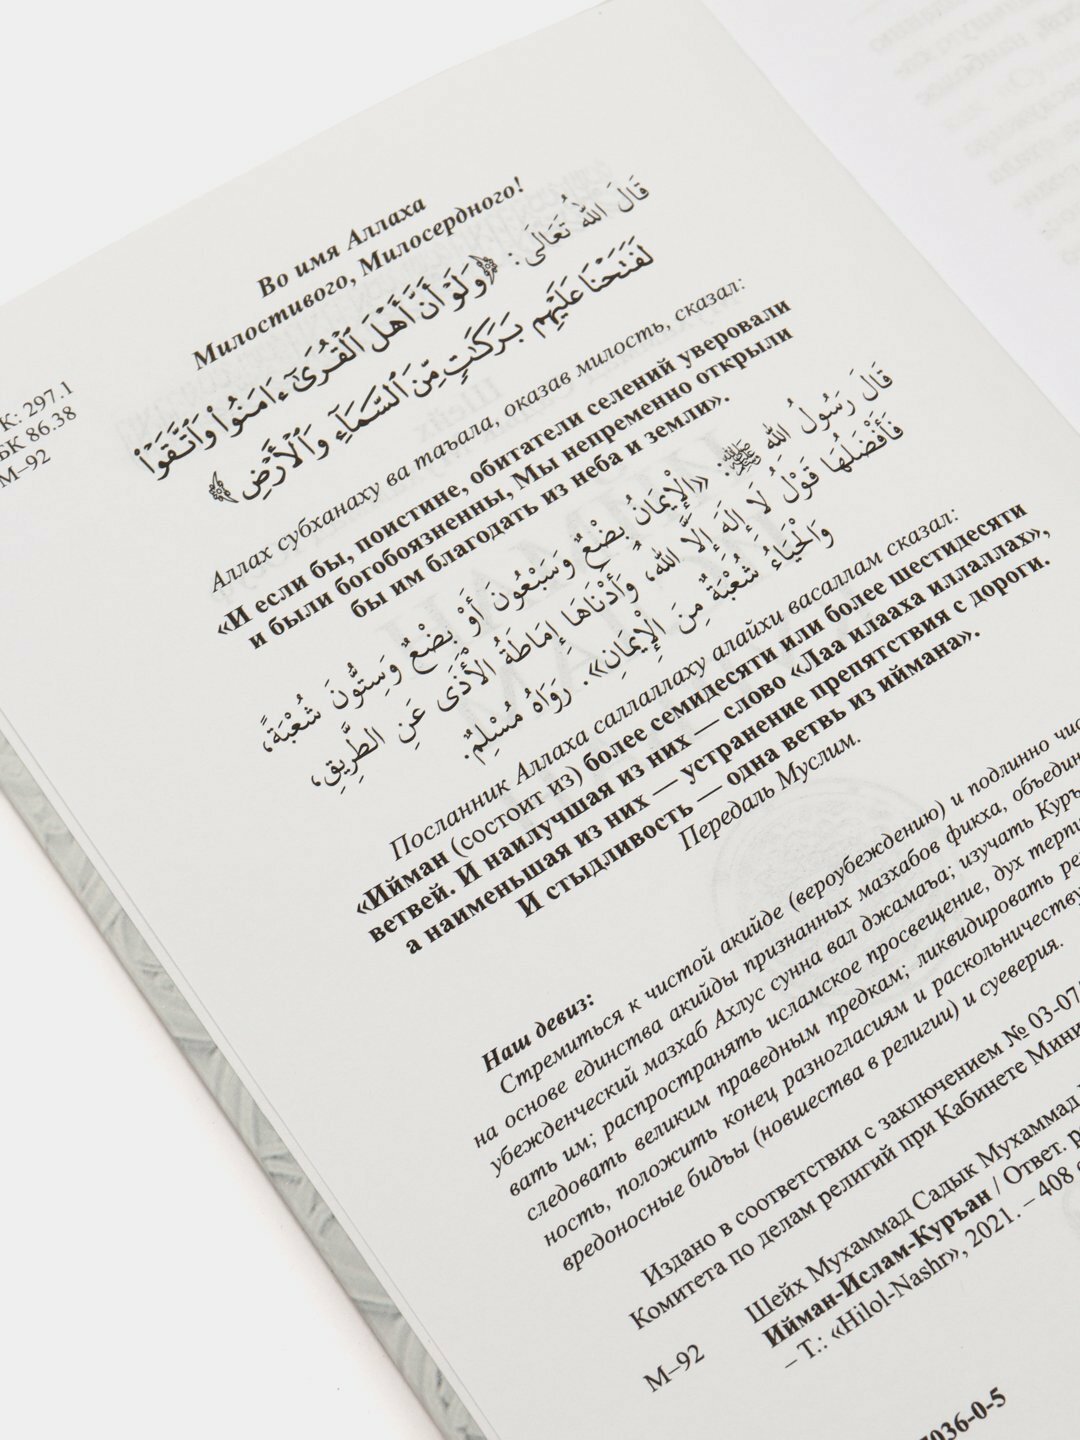 Во имя Аллаха
Милостивого, Милосердного!
قَالَ اللهُ تَعَالَى: ﴿وَلَوْ أَنَّ أَهْلَ ٱلْقُرَىٰٓ ءَامَنُوا۟ وَٱتَّقَوْا۟
لَفَتَحْنَا عَلَيْهِم بَرَكَـٰتٍ مِّنَ ٱلسَّمَآءِ وَٱلْأَرْضِ﴾
К: 297.1
БК 86.38
М–92
Аллах субханаху ва таъала, оказав милость, сказал:
«И если бы, поистине, обитатели селений уверовали
и были богобоязненны, Мы непременно открыли
бы им благодать из неба и земли».
قَالَ رَسُولُ اللهِ ﷺ: «الْإِيمَانُ بِضْعٌ وَسَبْعُونَ أَوْ بِضْعٌ وَسِتُّونَ شُعْبَةً،
فَأَفْضَلُهَا قَوْلُ لَا إِلَهَ إِلَّا اللهُ، وَأَدْنَاهَا إِمَاطَةُ الْأَذَى عَنِ الطَّرِيقِ،
وَالْحَيَاءُ شُعْبَةٌ مِنَ الْإِيمَانِ». رَوَاهُ مُسْلِمٌ.
Посланник Аллаха саллаллаху алайхи васаллам сказал:
«Ийман (состоит из) более семидесяти или более шестидесяти
ветвей. И наилучшая из них — слово «Лаа илааха иллаллах»,
а наименьшая из них — устранение препятствия с дороги.
И стыдливость — одна ветвь из иймана».
Передаль Муслим.
Наш девиз:
Стремиться к чистой акийде (вероубеждению) и подлинно
на основе единства акийды признанных мазхабов фикха,
убежденческий мазхаб Ахлус сунна вал джамаъа; изучать
вать им; распространять исламское просвещение, дух
следовать великим праведным предкам; ликвидировать
ность, положить конец разногласиям и раскольничеству
вредоносные бидъы (новшества в религии) и суеверия.
Издано в соответствии с заключением № 03-07
Комитета по делам религий при Кабинете
Шейх Мухаммад Садык Мухаммад
Ийман-Ислам-Куръан / Ответ.
– Т.: «Hilol-Nashr», 2021. – 408
М–92
036-0-5